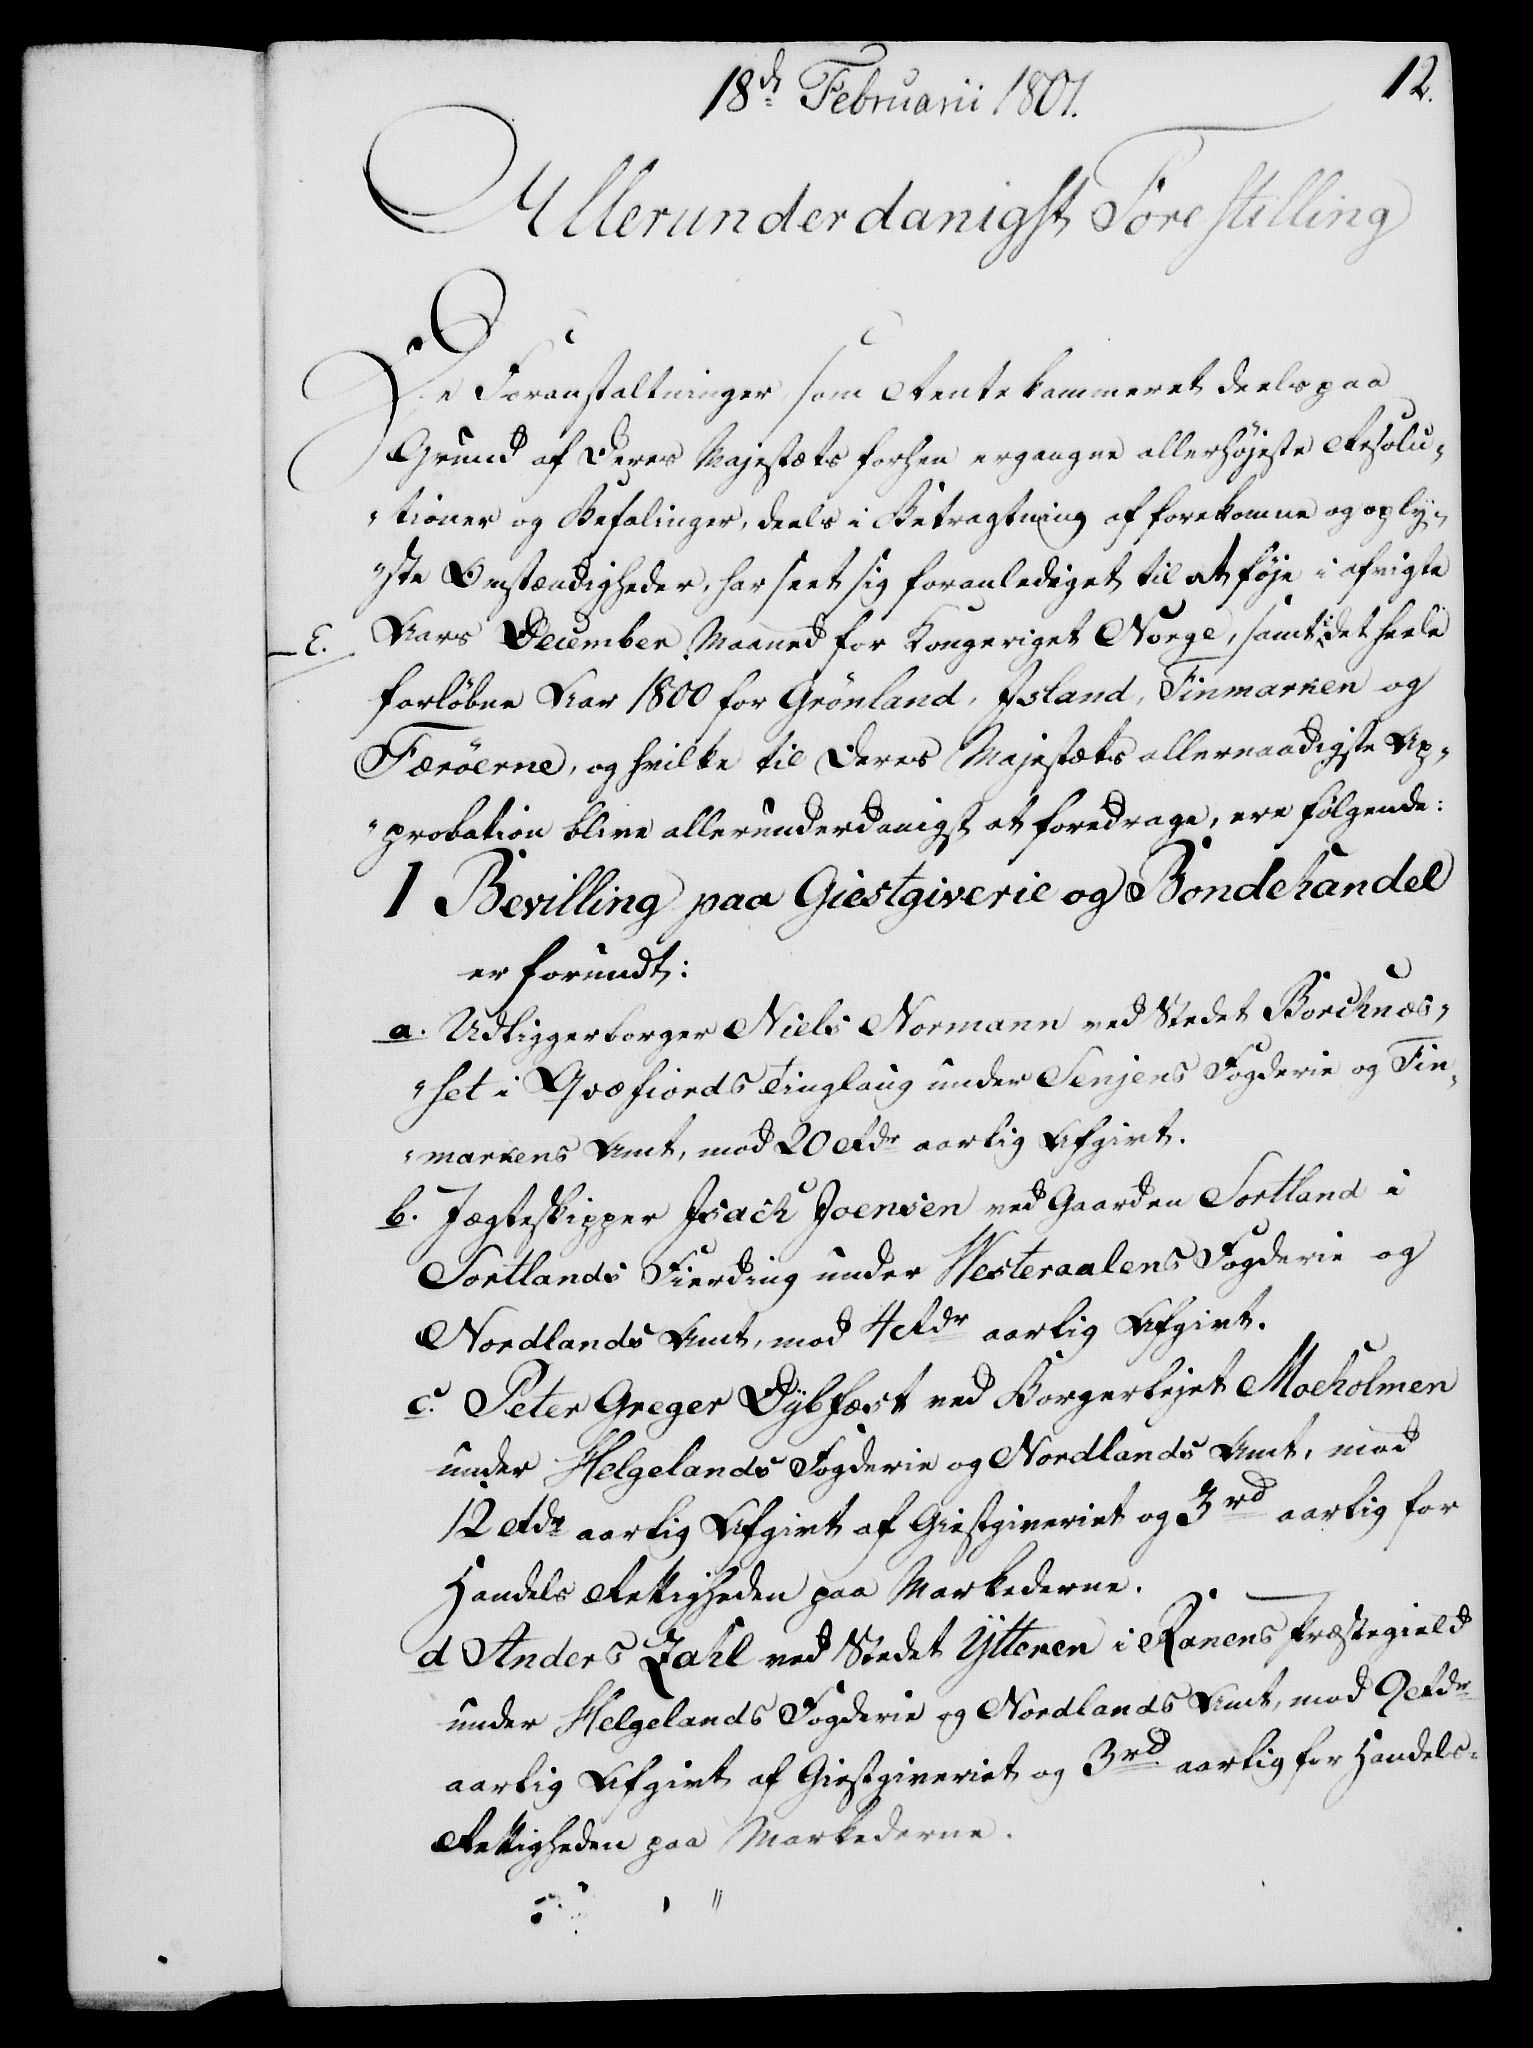 18d Februarii 1801.
12.
Allerunderdanigst Forestilling
De Foranstaltninger, som Rentekammeret deels paa
Grund af Deres Majestæts forhen ergangne allerhøjeste Resolu-
tioner og Befalinger, deels i Betragtning af forekomne og oply-
ste Omstændigheder, har seet sig foranlediget til at føje i afvigte
E.
Aars December Maaned for Kongeriget Norge, samt i det heele
forløbne Aar 1800 for Grönland, Island, Finmarken og
Færöerne, og hvilke til Deres Majestæts allernaadigste Ap-
probation blive allerunderdanigst at foredrage, ere følgende:
1 Bevilling paa Giestgiverie og Bondehandel
er forundt:
a. Udliggerborger Niels Normann ved Stedet Borchnæs-
set i Qvæfiords Tinglaug under Senjens Fogderie og Fin-
markens Amt, mod 20 Rdr aarlig Afgivt.
b. Jægteskipper Isach Joensen ved Gaarden Sortland i
Sortlands Fierding under Westeraalens Fogderie og
Nordlands Amt, mod 4 Rdr aarlig Afgivt.
c. Peter Greger Dybfæst ved Borgerlejet Moeholmen
under Helgelands Fogderie og Nordlands Amt, mod
12 Rdr aarlig Afgivt af Giestgiveriet og 3 rd aarlig for
Handels Rettigheden paa Markederne.
d Anders Zahl ved Stedet Ytteren i Ranens Præstegield
under Helgelands Fogderie og Nordlands Amt, mod 9 Rdr
aarlig Afgivt af Giestgiveriet og 3 rd aarlig for Handels-
Rettigheden paa Markederne.